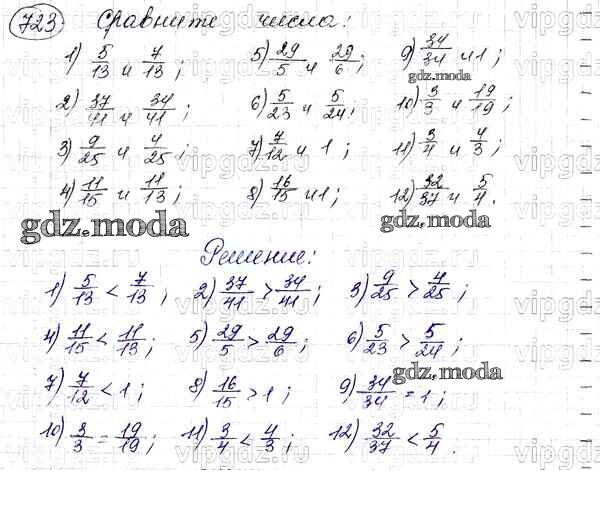 723 Сравните числа:
1) 5/13 и 7/13; 5) 29/5 и 29/6; 9) 34/34 и 1;
gdz.moda
2) 37/41 и 34/41; 6) 5/23 и 5/24; 10) 3/3 и 19/19;
3) 9/25 и 4/25; 7) 7/12 и 1; 11) 3/4 и 4/3;
4) 11/15 и 11/13; 8) 16/15 и 1; 12) 32/37 и 5/4.
gdz.moda gdz.moda
Решение:
1) 5/13 < 7/13; 2) 37/41 > 34/41; 3) 9/25 > 4/25;
4) 11/15 < 11/13; 5) 29/5 > 29/6; 6) 5/23 > 5/24;
gdz.moda
7) 7/12 < 1; 8) 16/15 > 1; 9) 34/34 = 1;
10) 3/3 = 19/19; 11) 3/4 < 4/3; 12) 32/37 < 5/4.